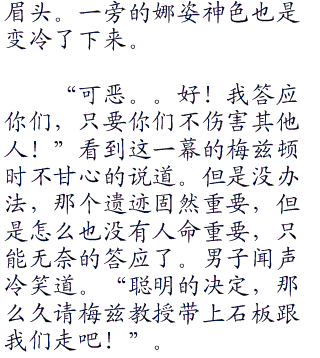 眉头。一旁的娜姿神色也是
变冷了下来。
“可恶。。好！我答应
你们，只要你们不伤害其他
人！”看到这一幕的梅兹顿
时不甘心的说道。但是没办
法，那个遗迹固然重要，但
是怎么也没有人命重要，只
能无奈的答应了。男子闻声
冷笑道。“聪明的决定，那
么久请梅兹教授带上石板跟
我们走吧！”。